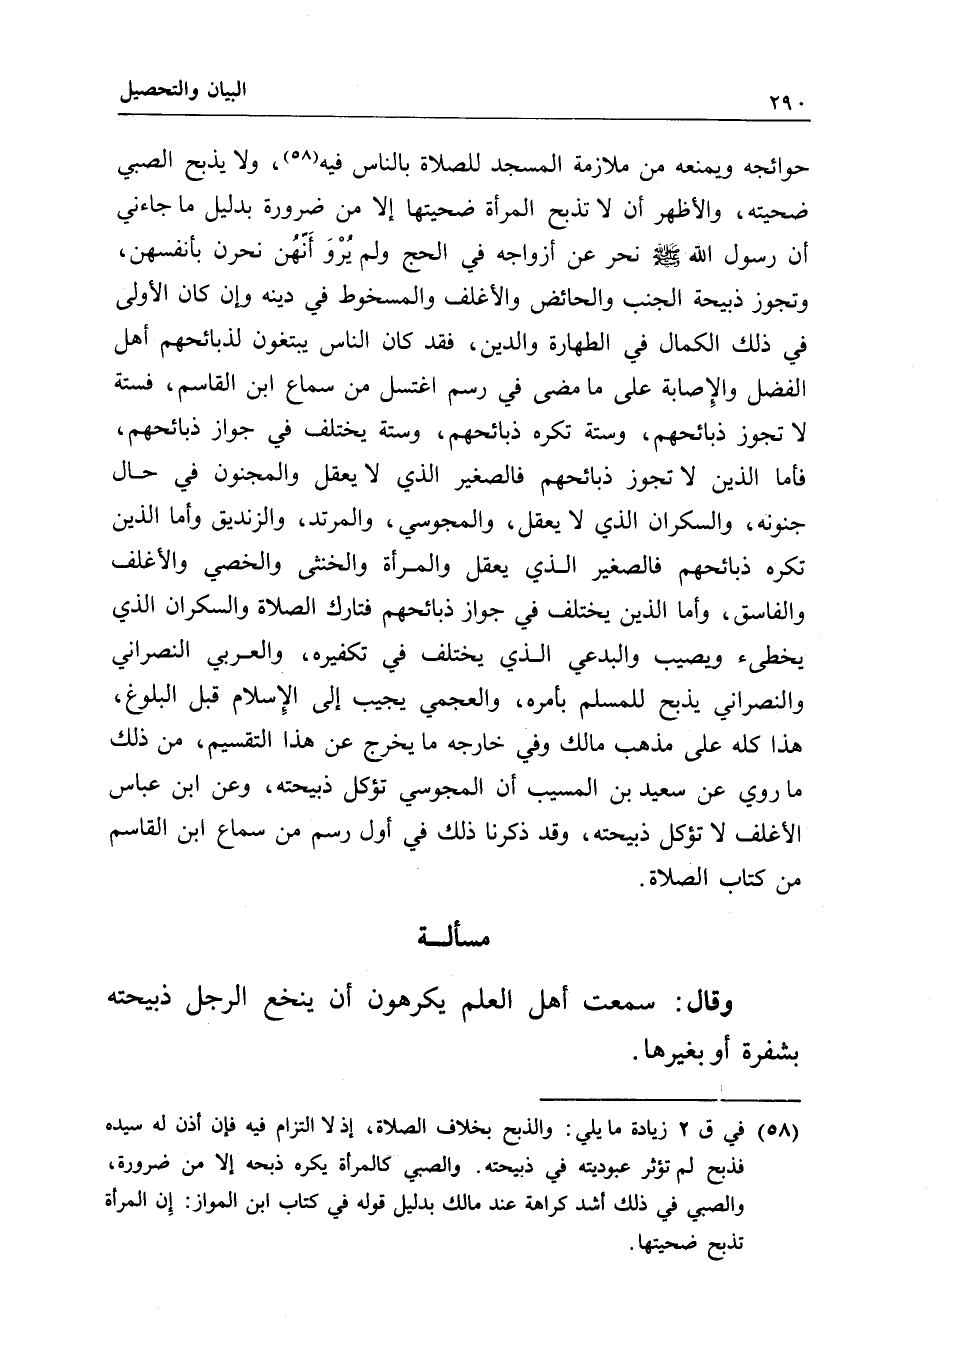 ٢٩٠ البيان والتحصيل
حوائجه ويمنعه من ملازمة المسجد للصلاة بالناس فيه(٥٨)، ولا يذبح الصبي
ضحيته، والأظهر أن لا تذبح المرأة ضحيتها إلا من ضرورة بدليل ما جاءني
أن رسول الله ﷺ نحر عن أزواجه في الحج ولم يُرْوَ أَنَّهُن نحرن بأنفسهن،
وتجوز ذبيحة الجنب والحائض والأغلف والمسخوط في دينه وإن كان الأولى
في ذلك الكمال في الطهارة والدين، فقد كان الناس يبتغون لذبائحهم أهل
الفضل والإصابة على ما مضى في رسم اغتسل من سماع ابن القاسم، فستة
لا تجوز ذبائحهم، وستة تكره ذبائحهم، وستة يختلف في جواز ذبائحهم،
فأما الذين لا تجوز ذبائحهم فالصغير الذي لا يعقل والمجنون في حال
جنونه، والسكران الذي لا يعقل، والمجوسي، والمرتد، والزنديق وأما الذين
تكره ذبائحهم فالصغير الذي يعقل والمرأة والخنثى والخصي والأغلف
والفاسق، وأما الذين يختلف في جواز ذبائحهم فتارك الصلاة والسكران الذي
يخطىء ويصيب والبدعي الذي يختلف في تكفيره، والعربي النصراني
والنصراني يذبح للمسلم بأمره، والعجمي يجيب إلى الإسلام قبل البلوغ،
هذا كله على مذهب مالك وفي خارجه ما يخرج عن هذا التقسيم، من ذلك
ما روي عن سعيد بن المسيب أن المجوسي تؤكل ذبيحته، وعن ابن عباس
الأغلف لا تؤكل ذبيحته، وقد ذكرنا ذلك في أول رسم من سماع ابن القاسم
من كتاب الصلاة.
مسألة
وقال: سمعت أهل العلم يكرهون أن ينخع الرجل ذبيحته
بشفرة أو بغيرها.
(٥٨) في ق ٢ زيادة ما يلي: والذبح بخلاف الصلاة، إذ لا التزام فيه فإن أذن له سيده
فذبح لم تؤثر عبوديته في ذبيحته. والصبي كالمرأة يكره ذبحه إلا من ضرورة،
والصبي في ذلك أشد كراهة عند مالك بدليل قوله في كتاب ابن المواز: إن المرأة
تذبح ضحيتها.